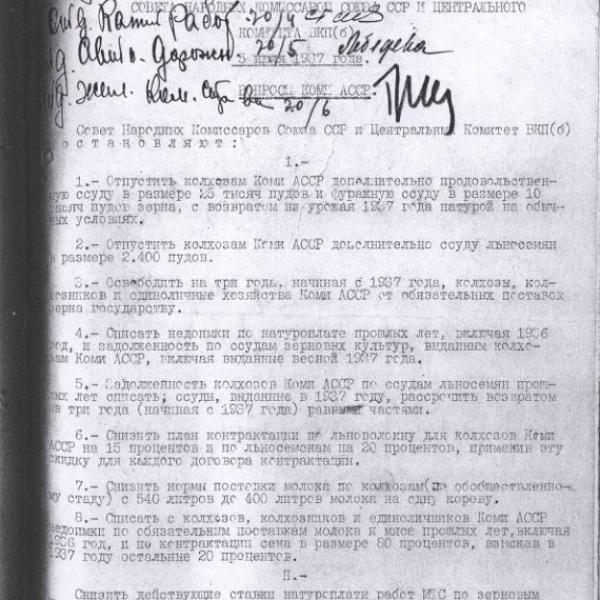 СОВЕТА НАРОДНЫХ КОМИССАРОВ СОЮЗА ССР И ЦЕНТРАЛЬНОГО
КОМИТЕТА ВКП(б)
20/4
20/5
1937 года.
20/6
ВОПРОСЫ КОМИ АССР.
Совет Народных Комиссаров Союза ССР и Центральный Комитет ВКП(б)
остановляют:
1.-
1.- Отпустить колхозам Коми АССР дополнительно продовольствен-
ную ссуду в размере 25 тысяч пудов и фуражную ссуду в размере 10
тысяч пудов зерна, с возвратом из урожая 1937 года натурой на обыч-
ных условиях.
2.- Отпустить колхозам Коми АССР дополнительно ссуду льносемян
в размере 2.400 пудов.
3.- Освободить на три года, начиная с 1937 года, колхозы, кол-
хозников и единоличные хозяйства Коми АССР от обязательных поставок
зерна государству.
4.- Списать недоимки по натуроплате прошлых лет, включая 1936
год, и задолженность по ссудам зерновых культур, выданным колхо-
зам Коми АССР, включая выданные весной 1937 года.
5.- Задолженность колхозов Коми АССР по ссудам льносемян прош-
лых лет списать; ссуды, выданные в 1937 году, рассрочить возвратом
на три года (начиная с 1937 года) равными частями.
6.- Снизить план контрактации по льноволокну для колхозов Коми
АССР на 15 процентов и по льносеменам на 20 процентов, применив эту
скидку для каждого договора контрактации.
7.- Снизить нормы поставки молока по колхозам(по обобществленно-
му стаду) с 540 литров до 400 литров молока на одну корову.
8.- Списать с колхозов, колхозников и единоличников Коми АССР
недоимки по обязательным поставкам молока и мяса прошлых лет,включая
1936 год, и по контрактации сена в размере 80 процентов, взыскав в
1937 году остальные 20 процентов.
П.-
Снизить действующие ставки натуроплаты работ МТС по зерновым